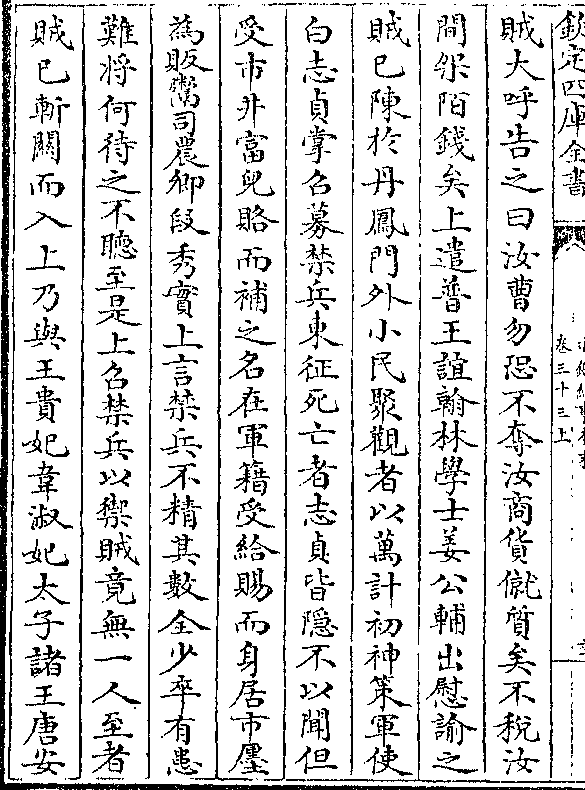 欽定四庫全書
卷三十三上
賊大呼告之曰汝曹勿恐不奪汝商貨僦質矣不稅汝
間架陌錢矣上遣普王誼翰林學士姜公輔出慰諭之
賊已陳於丹鳳門外小民聚觀者以萬計初神策軍使
白志貞掌召募禁兵東征死亡者志貞皆隱不以聞但
受市井富兒賂而補之名在軍籍受給賜而身居市廛
為販鬻司農卿段秀實上言禁兵不精其數全少卒有患
難將何待之不聽至是上召禁兵以禦賊竟無一人至者
賊已斬關而入上乃與王貴妃韋淑妃太子諸王唐安